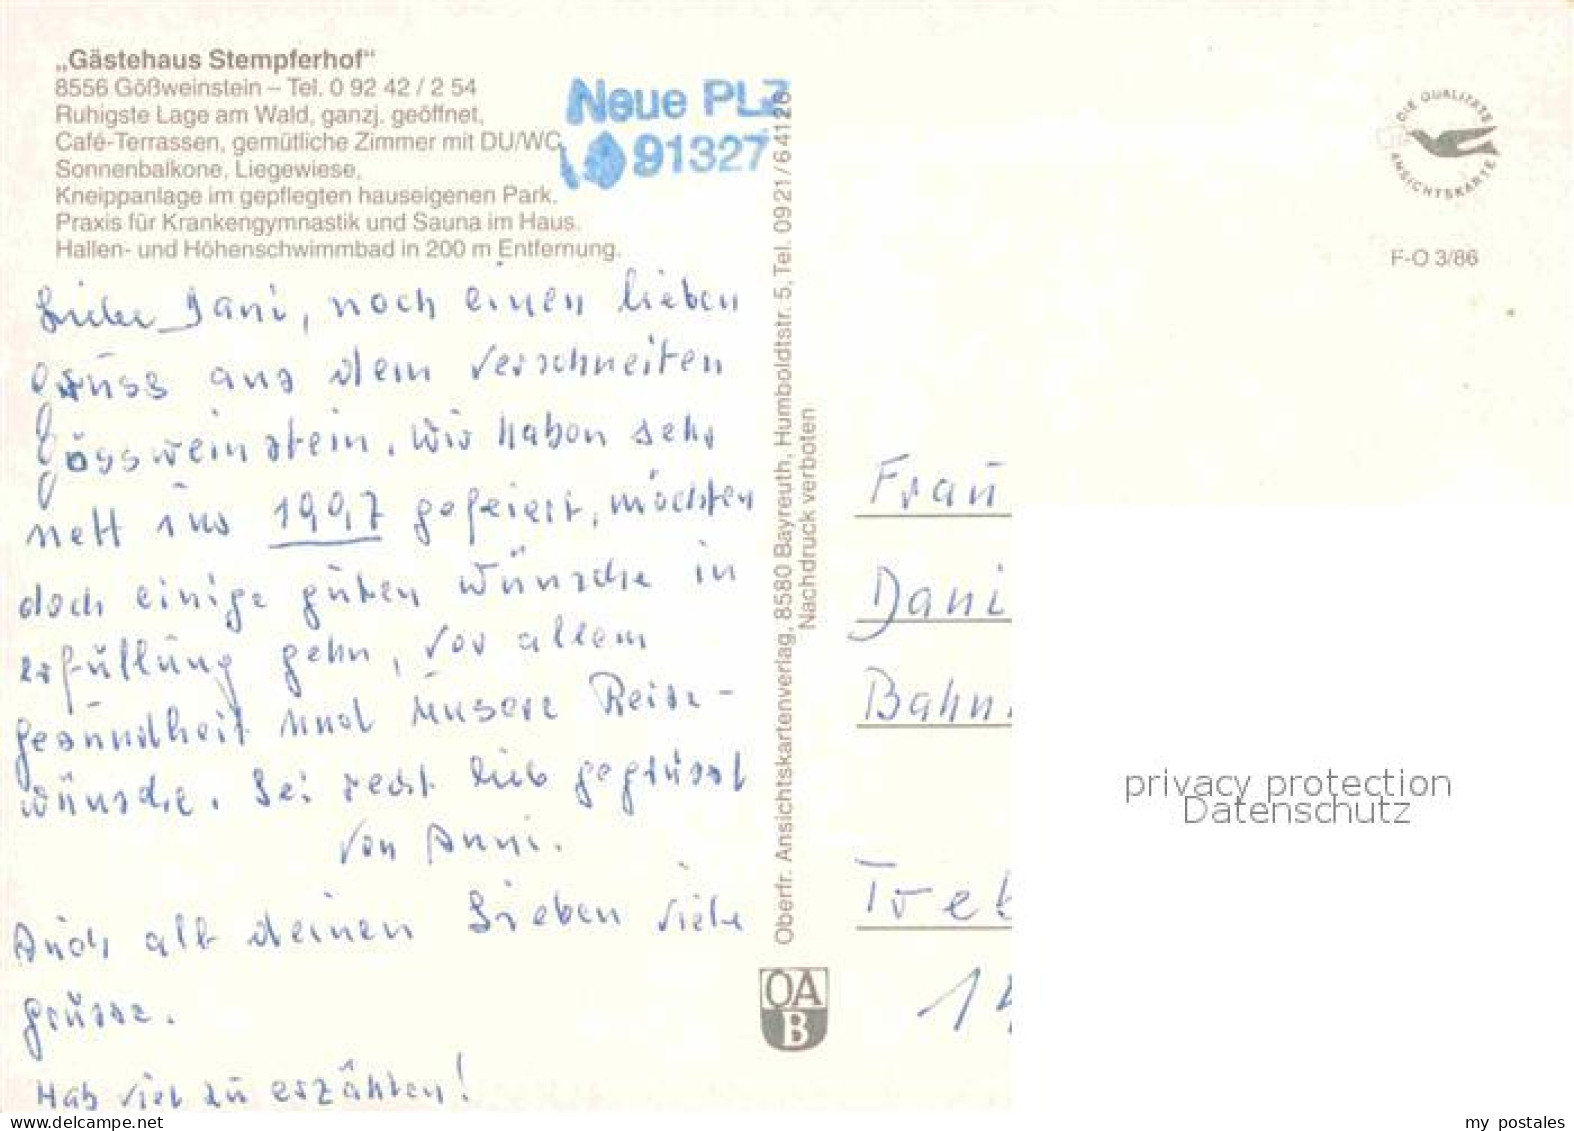 „Gästehaus Stempferhof“
8556 Gößweinstein – Tel. 0 92 42 / 2 54
Ruhigste Lage am Wald, ganzj. geöffnet,
Café-Terrassen, gemütliche Zimmer mit DU/WC,
Sonnenbalkone, Liegewiese,
Kneippanlage im gepflegten hauseigenen Park.
Praxis für Krankengymnastik und Sauna im Haus.
Hallen- und Höhenschwimmbad in 200 m Entfernung.
Neue PLZ
91327
Liebe Dani, noch einen lieben
gruss aus dem verschneiten
gössweinstein. Wir haben sehr
nett ins 1997 gefeiert, möchten
doch einige guten Wünsche in
erfüllung gehn, vor allem
gesundheit und unsere Reise-
wünsche. Sei recht lieb gegrüsst
von Anni.
Auch all deinen Lieben viele
grüsse.
Hab viel zu erzählen!
Oberfr. Ansichtskartenverlag, 8580 Bayreuth, Humboldtstr. 5, Tel. 09 21 / 6 41 26
Nachdruck verboten
OA
B
DIE QUALITÄTS
ANSICHTSKARTE
F-O 3/86
Frau
Dani
Bahn
Treb
14
privacy protection
Datenschutz
www.delcampe.net
my postales